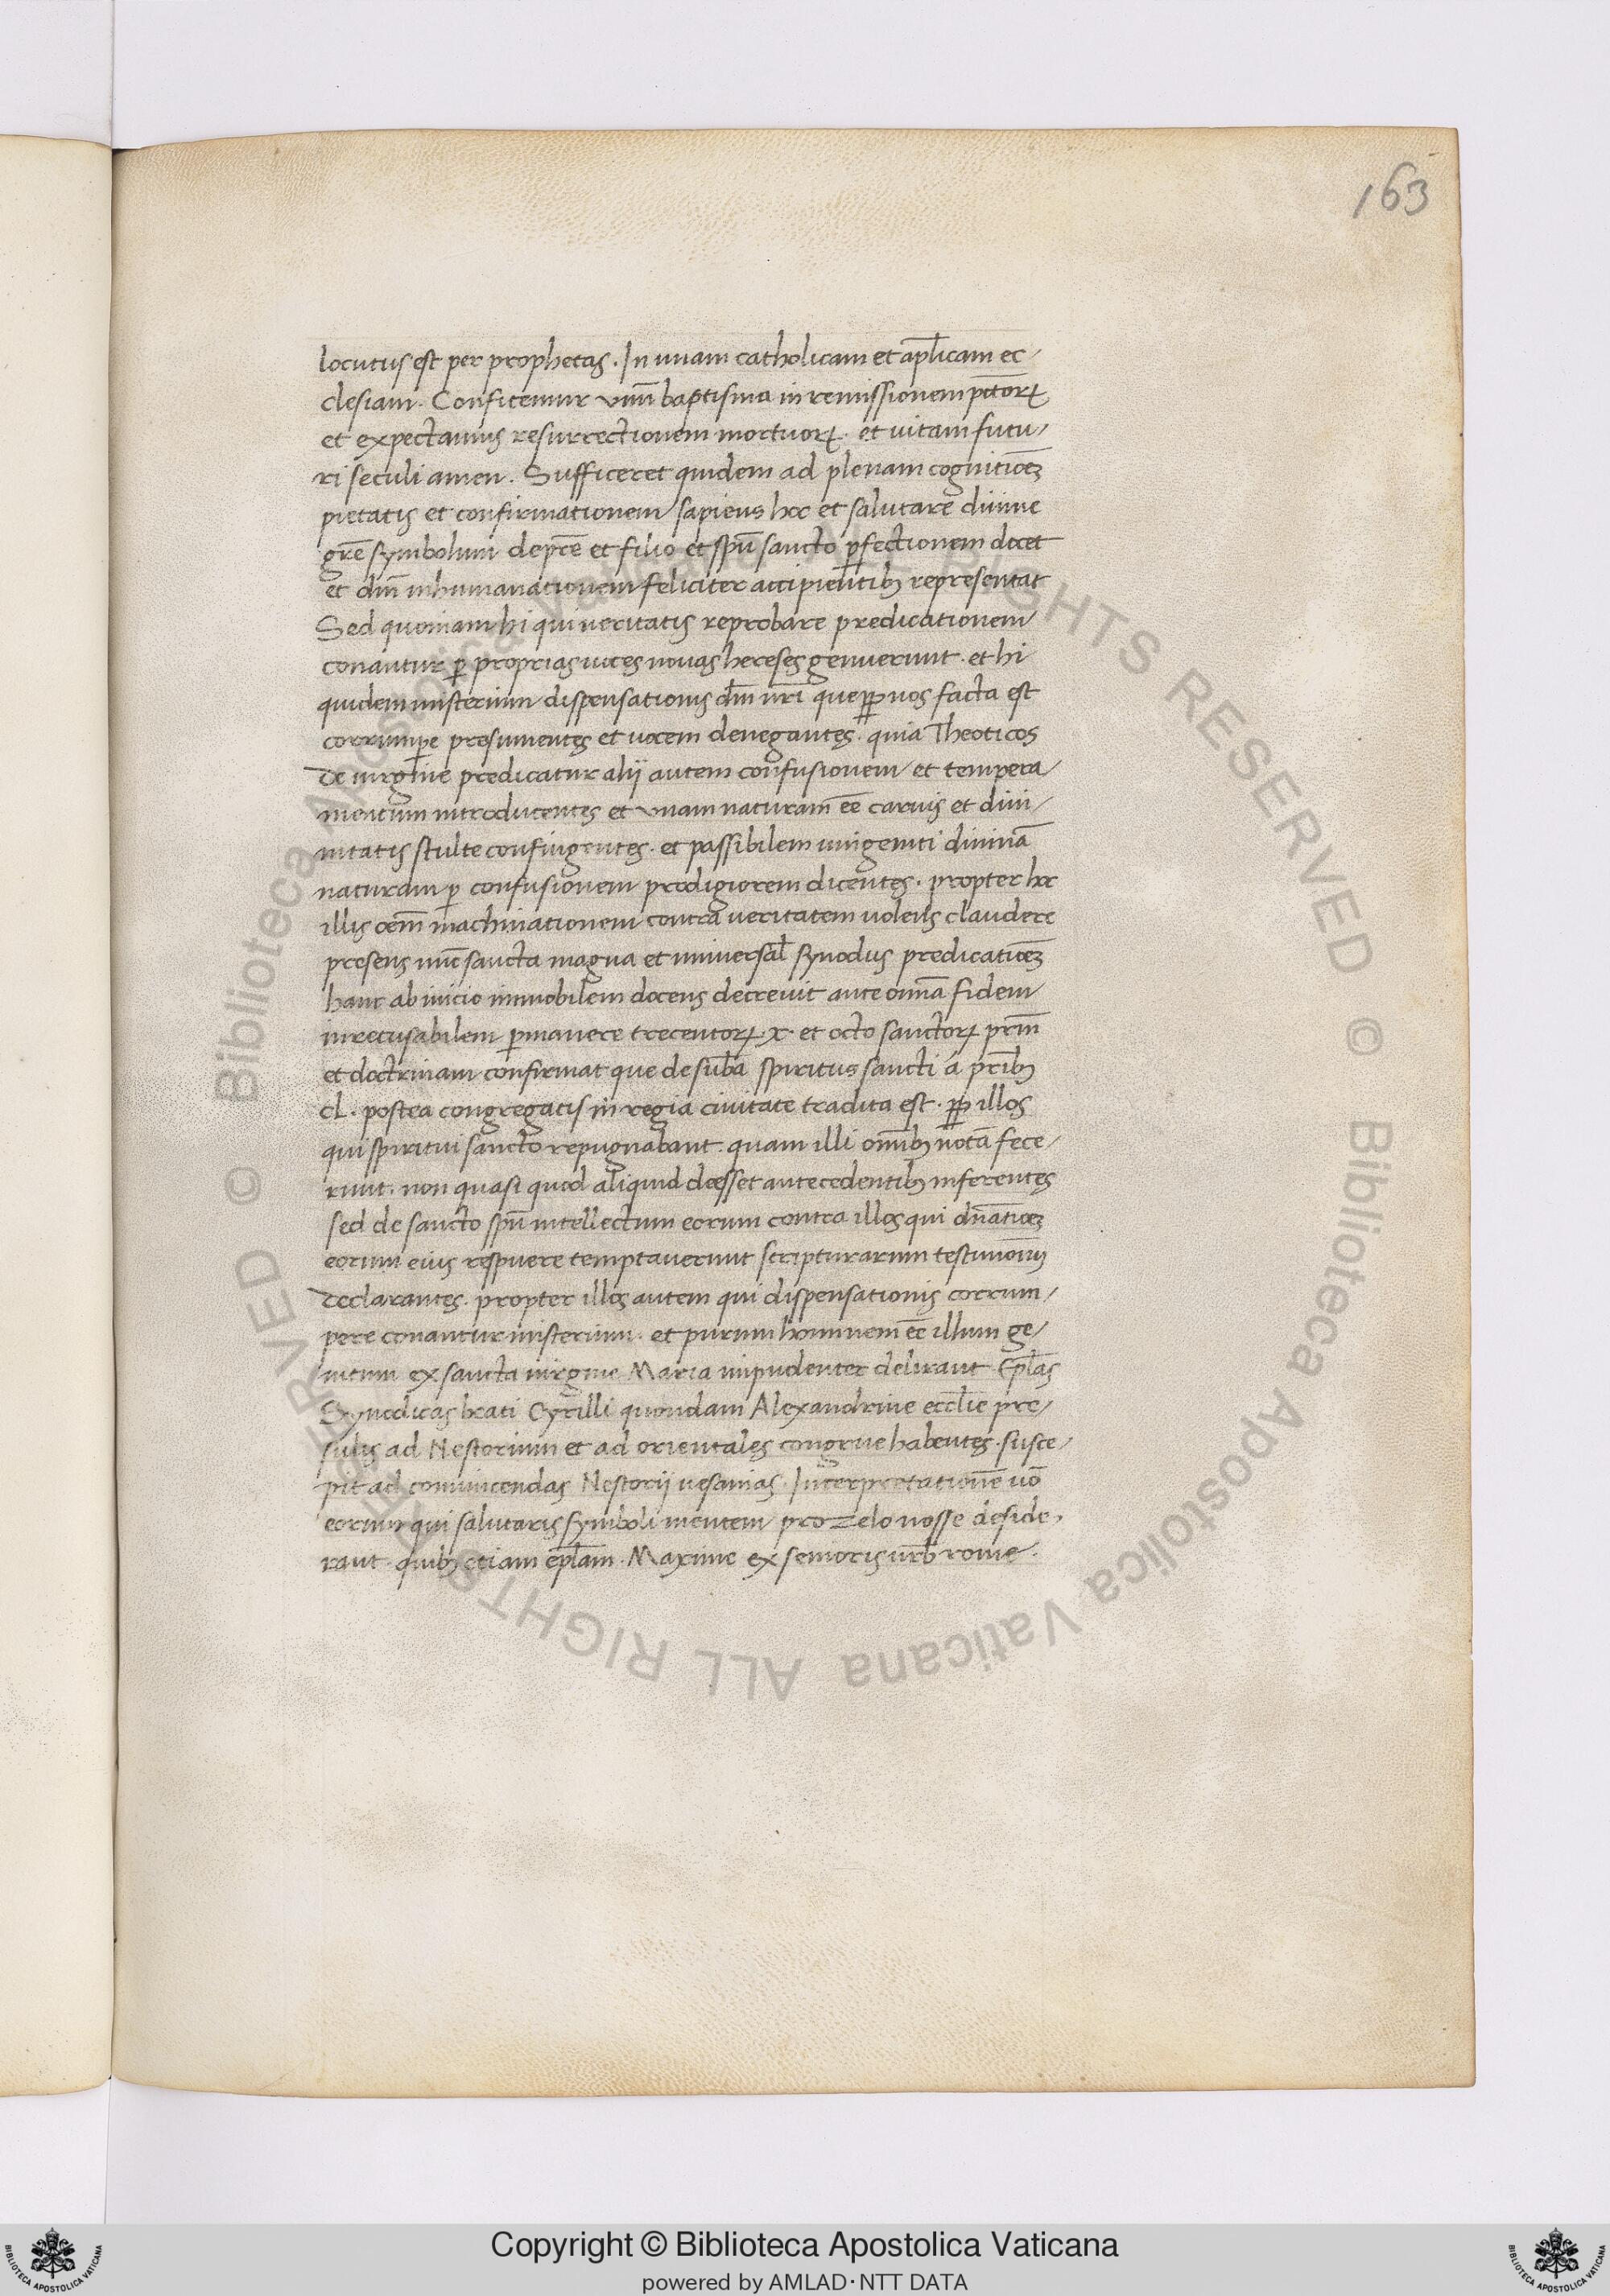 163
locutus est per prophetas. In unam catholicam et apl̄icam ec-
clesiam. Confitemur vnū baptisma in remissionem pctōrꝝ
et expectamus resurrectionem mortuorꝝ. et uitam futu-
ri seculi amen. Sufficeret quidem ad plenam cognitiōeꝫ
pietatis et confirmationem sapiens hoc et salutare diuine
grē symbolum de prē et filio et spū sancto ꝑfectionem docet
et dn̄i inhumanationem feliciter accipientibꝫ representat
Sed quoniam hi qui ueritatis reprobare predicationem
conantur ꝑ proprias uoces nouas hereses genuerunt. et hi
quidem misterium dispensationis dn̄i nr̄i que ꝓpꝑ nos facta est
corrumꝑe presumentes et uocem denegantes. quia Theoticos
de uirgine predicatur alij autem confusionem et tempera-
mentum introducentes et vnam naturam eē carnis et diui-
nitatis stulte confingentes. et passibilem unigeniti diuinā
naturam ꝑ confusionem prodigiorem dicentes. propter hoc
illis oēm machinationem contra ueritatem uolens claudere
presens nūc sancta magna et uniuersal̄ synodus predicatiōeꝫ
hanc ab inicio immobilem docens decreuit ante omnā fidem
inrecusabilem ꝑmanere trecentorꝝ. x. et octo sanctorꝝ prm̄
et doctrinam confirmat que de sub̄a spiritus sancti á prībꝫ
cL. postea congregatis in regia ciuitate tradita est. ꝓpꝑ illos
qui spiritui sancto repugnabant. quam illi om̄ibꝫ notā fece-
runt. non quasi quod aliquid deesset antecedentibꝫ inferentes
sed de sancto spū intellectum eorum contra illos qui dn̄atiōeꝫ
eorum eius respuere temptauerunt scripturarum testimōnijs
declarantes. propter illos autem qui dispensationis corrum-
pere conantur misterium. et purum hominem eē illum ge-
nitum ex sancta uirgine Maria impudenter delirant Epl̄as
Synodicas beati Cyrilli quondam Alexandrine eccl̄ie pre-
sulis ad Nestorium et ad orientales congrue habentes. susce-
pit ad conuincendas Nestorij uesanias. Interpretationē uō
eorum qui salutaris symboli mentem pro zelo nosse deside-
rant. quibꝫ etiam epl̄am. Maxime ex senioris urb̄ rome.
© Biblioteca Apostolica Vaticana ALL RIGHTS RESERVED © Biblioteca Apostolica Vaticana ALL RIGHTS RESERVED
BIBLIOTECA APOSTOLICA VATICANA
Copyright © Biblioteca Apostolica Vaticana
powered by AMLAD·NTT DATA
BIBLIOTECA APOSTOLICA VATICANA